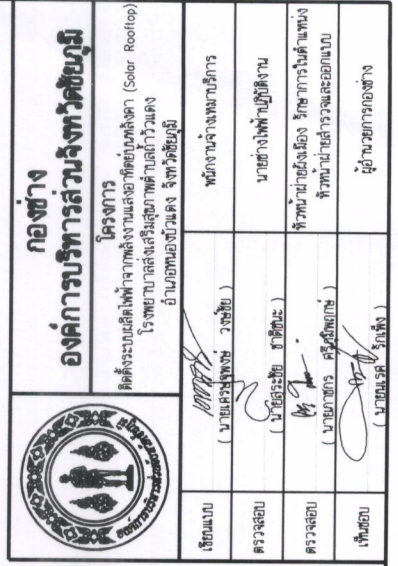 กองช่าง
องค์การบริหารส่วนจังหวัดชัยภูมิ
โครงการ
ติดตั้งระบบผลิตไฟฟ้าจากพลังงานแสงอาทิตย์บนหลังคา (Solar Rooftop)
โรงพยาบาลส่งเสริมสุขภาพตำบลถ้ำวัวแดง
อำเภอหนองบัวแดง จังหวัดชัยภูมิ
เขียนแบบ
( นายเศรษฐพงษ์ วงษ์ชัย )
พนักงานจ้างเหมาบริการ
ตรวจสอบ
( นายสุระชัย ชาติชนะ )
นายช่างไฟฟ้าปฏิบัติงาน
ตรวจสอบ
( นายภาชกร )
หัวหน้าฝ่ายผังเมือง รักษาการในตำแหน่ง
หัวหน้าฝ่ายสำรวจและออกแบบ
เห็นชอบ
( นายนเรศ รักเพ็ง )
ผู้อำนวยการกองช่าง